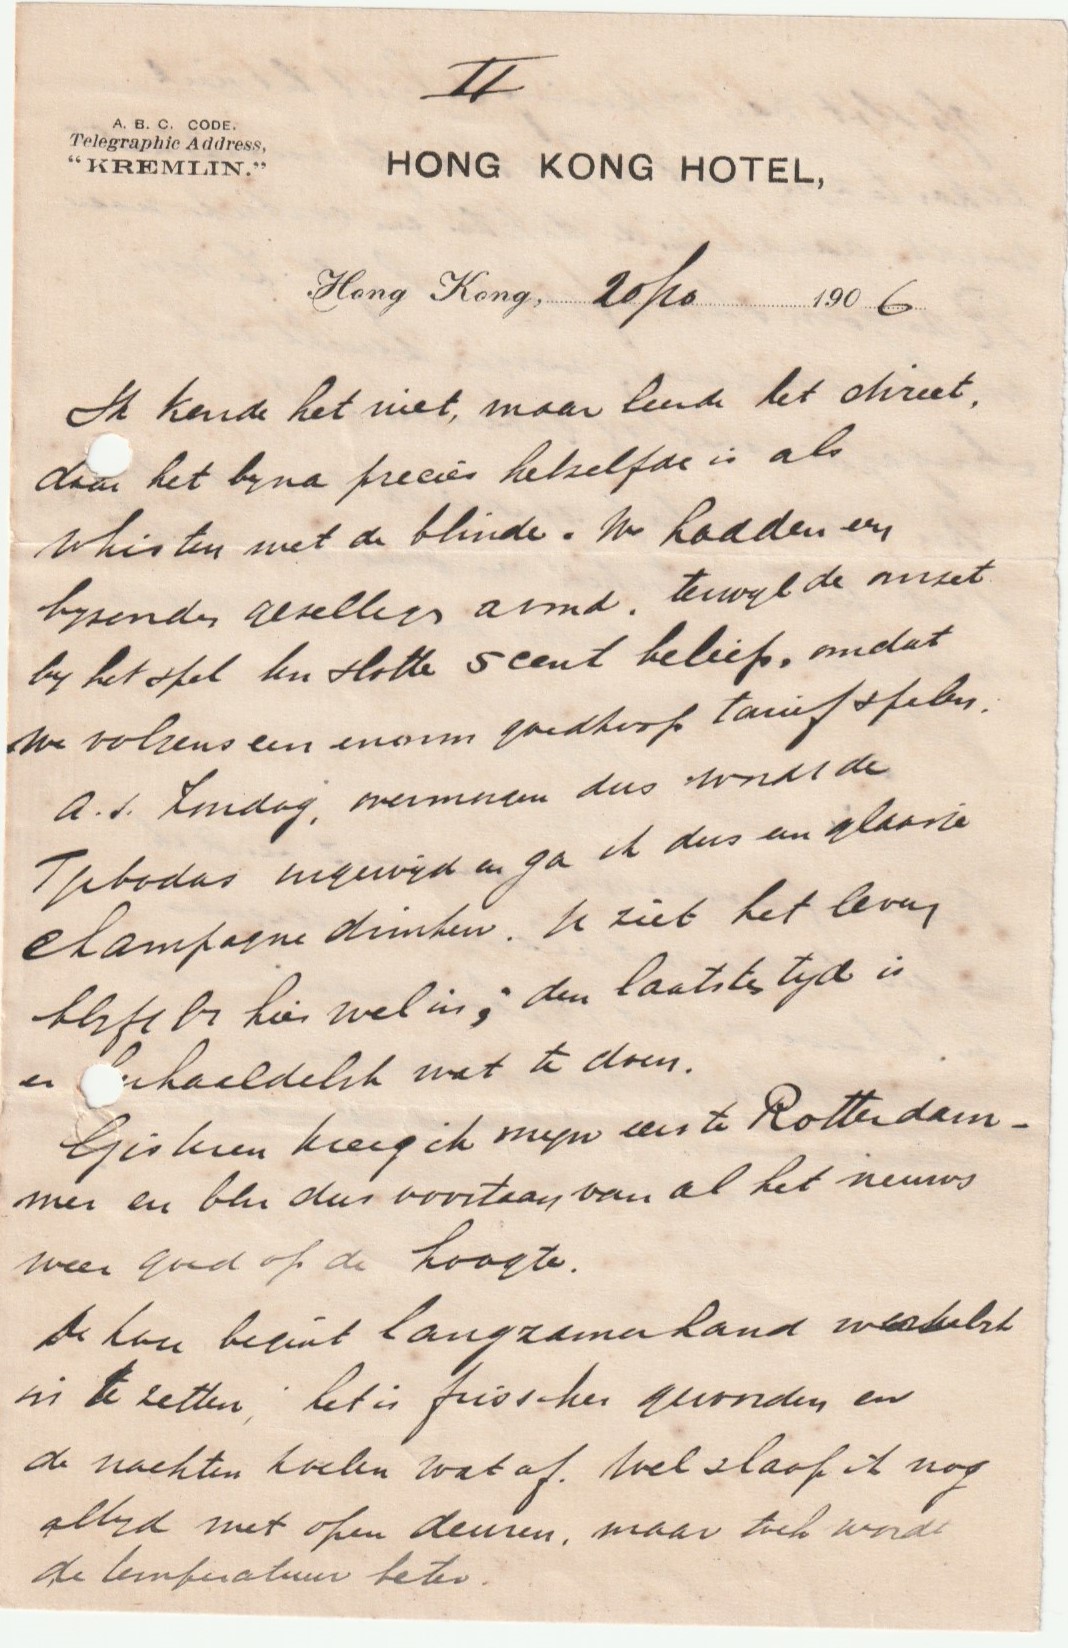 II
A. B. C. CODE.
Telegraphic Address,
"KREMLIN."
HONG KONG HOTEL,
Hong Kong, 20/10 1906
Ik kende het niet, maar leerde het direct,
daar het byna precies hetzelfde is als
whisten met de blinde. We hadden een
byzonder gezellige avond. terwyl de omzet
by het spel ten slotte 5 cent beliep, omdat
we volgens een enorm goedkoop tarief spelen.
a.s. Zondag, overmorgen dus wordt de
Tjibodas ingewijd en ga ik dus een glaasie
champagne drinken. Je ziet het leven
blyft er hier wel in; den laatsten tyd is
er behaeldelyk wat te doen.
Gisteren kreeg ik myn eerste Rotterdam-
mer en ben dus voortaan van al het nieuws
weer goed op de hoogte.
De kou begint langzamerhand werkelyk
in te zetten; het is frisscher geworden en
de nachten koelen wat af. Wel slaap ik nog
altyd met open deuren, maar toch wordt
de temperatuur beter.